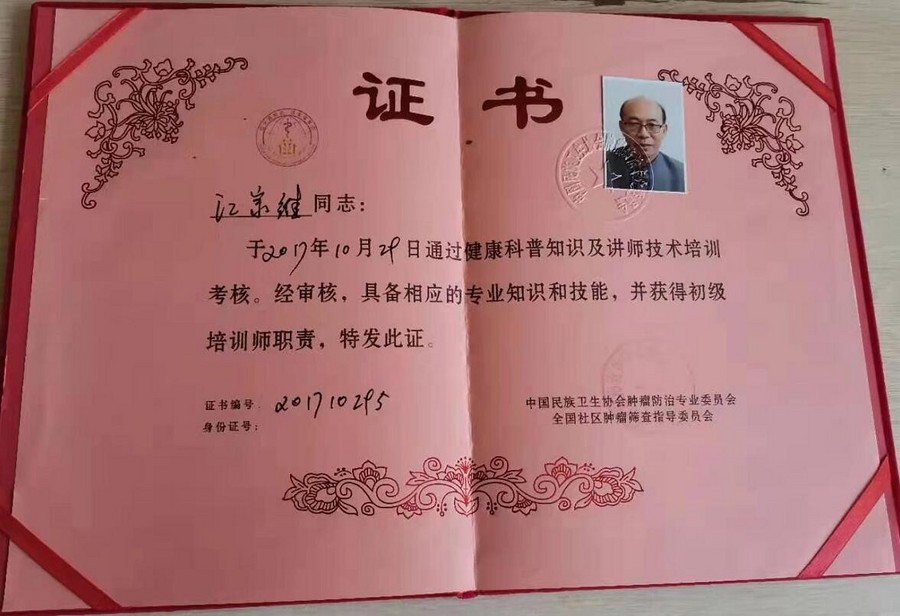 证书
江宗继同志：
于2017年10月29日通过健康科普知识及讲师技术培训
考核。经审核，具备相应的专业知识和技能，并获得初级
培训师职责，特发此证。
证书编号：201710295
身份证号：
中国民族卫生协会肿瘤防治专业委员会
全国社区肿瘤筛查指导委员会